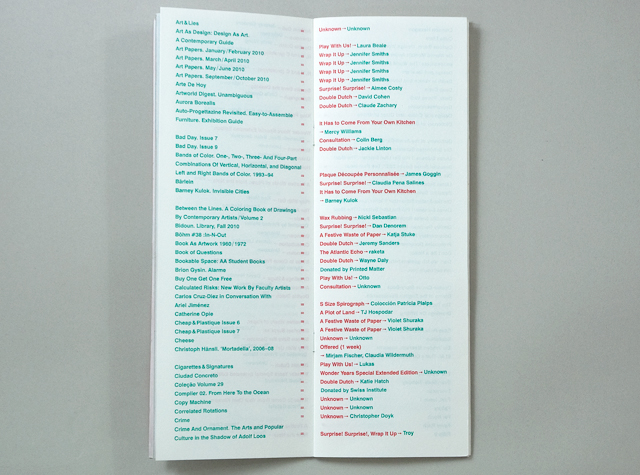 Art & Lies
Art As Design: Design As Art.
A Contemporary Guide
Art Papers. January/February 2010
Art Papers. March/April 2010
Art Papers. May/June 2010
Art Papers. September/October 2010
Arte De Hoy
Artworld Digest. Unambiguous
Aurora Borealis
Auto-Progettazine Revisited. Easy-to-Assemble
Furniture. Exhibition Guide
Bad Day, Issue 7
Bad Day, Issue 5
Bands of Color. One-, Two-, Three- And Four-Part
Combinations Of Vertical, Horizontal, and Diagonal
Left and Right Bands of Color. 1993–94
Bärlein
Barney Kulok. Invisible Cities
Between the Lines. A Coloring Book of Drawings
By Contemporary Artists/Volume 2
Bidoun. Library, Fall 2010
Böhm #38 :In-N-Out
Book As Artwork 1960/1972
Book of Questions
Bookable Space: AA Student Books
Brion Gysin. Alarme
Buy One Get One Free
Calculated Risks: New Work By Faculty Artists
Carlos Cruz-Diez in Conversation With
Ariel Jiménez
Catherine Opie
Cheap & Plastique Issue 6
Cheap & Plastique Issue 7
Cheese
Christoph Hänsli. 'Mortadella', 2006–08
Cigarettes & Signatures
Ciudad Concreto
Coleção Volume 29
Compiler 02. From Here To the Ocean
Copy Machine
Correlated Rotations
Crime
Crime And Ornament. The Arts and Popular
Culture in the Shadow of Adolf Loos
Unknown → Unknown
Play With Us! → Laura Beale
Wrap It Up → Jennifer Smiths
Wrap It Up → Jennifer Smiths
Wrap It Up → Jennifer Smiths
Wrap It Up → Jennifer Smiths
Surprise! Surprise! → Aimee Costy
Double Dutch → David Cohen
Double Dutch → Claude Zachary
It Has to Come From Your Own Kitchen
→ Marcy Williams
Consultation → Colin Berg
Double Dutch → Jackie Linton
Plaque Découpée Personnalisée → James Goggin
Surprise! Surprise! → Claudia Pena Salinas
It Has to Come From Your Own Kitchen
→ Barney Kulok
Wax Rubbing → Nicki Sebastian
Surprise! Surprise! → Dan Denorem
A Festive Waste of Paper → Katja Stuke
Double Dutch → Jeremy Sanders
The Atlantic Echo → rakote
Double Dutch → Wayne Daly
Donated by Printed Matter
Play With Us! → Otto
Consultation → Unknown
S Size Spirograph → Colocción Patricia Plalps
A Plot of Land → TJ Hospodar
A Festive Waste of Paper → Violet Shuraka
A Festive Waste of Paper → Violet Shuraka
Unknown → Unknown
Offered (1 week)
→ Mirjam Fischer, Claudia Wildermuth
Play With Us! → Lukas
Wonder Years Special Extended Edition → Unknown
Double Dutch → Kalie Hatch
Donated by Swiss Institute
Unknown → Unknown
Unknown → Unknown
Unknown → Christopher Doyk
Surprise! Surprise!, Wrap It Up → Troy